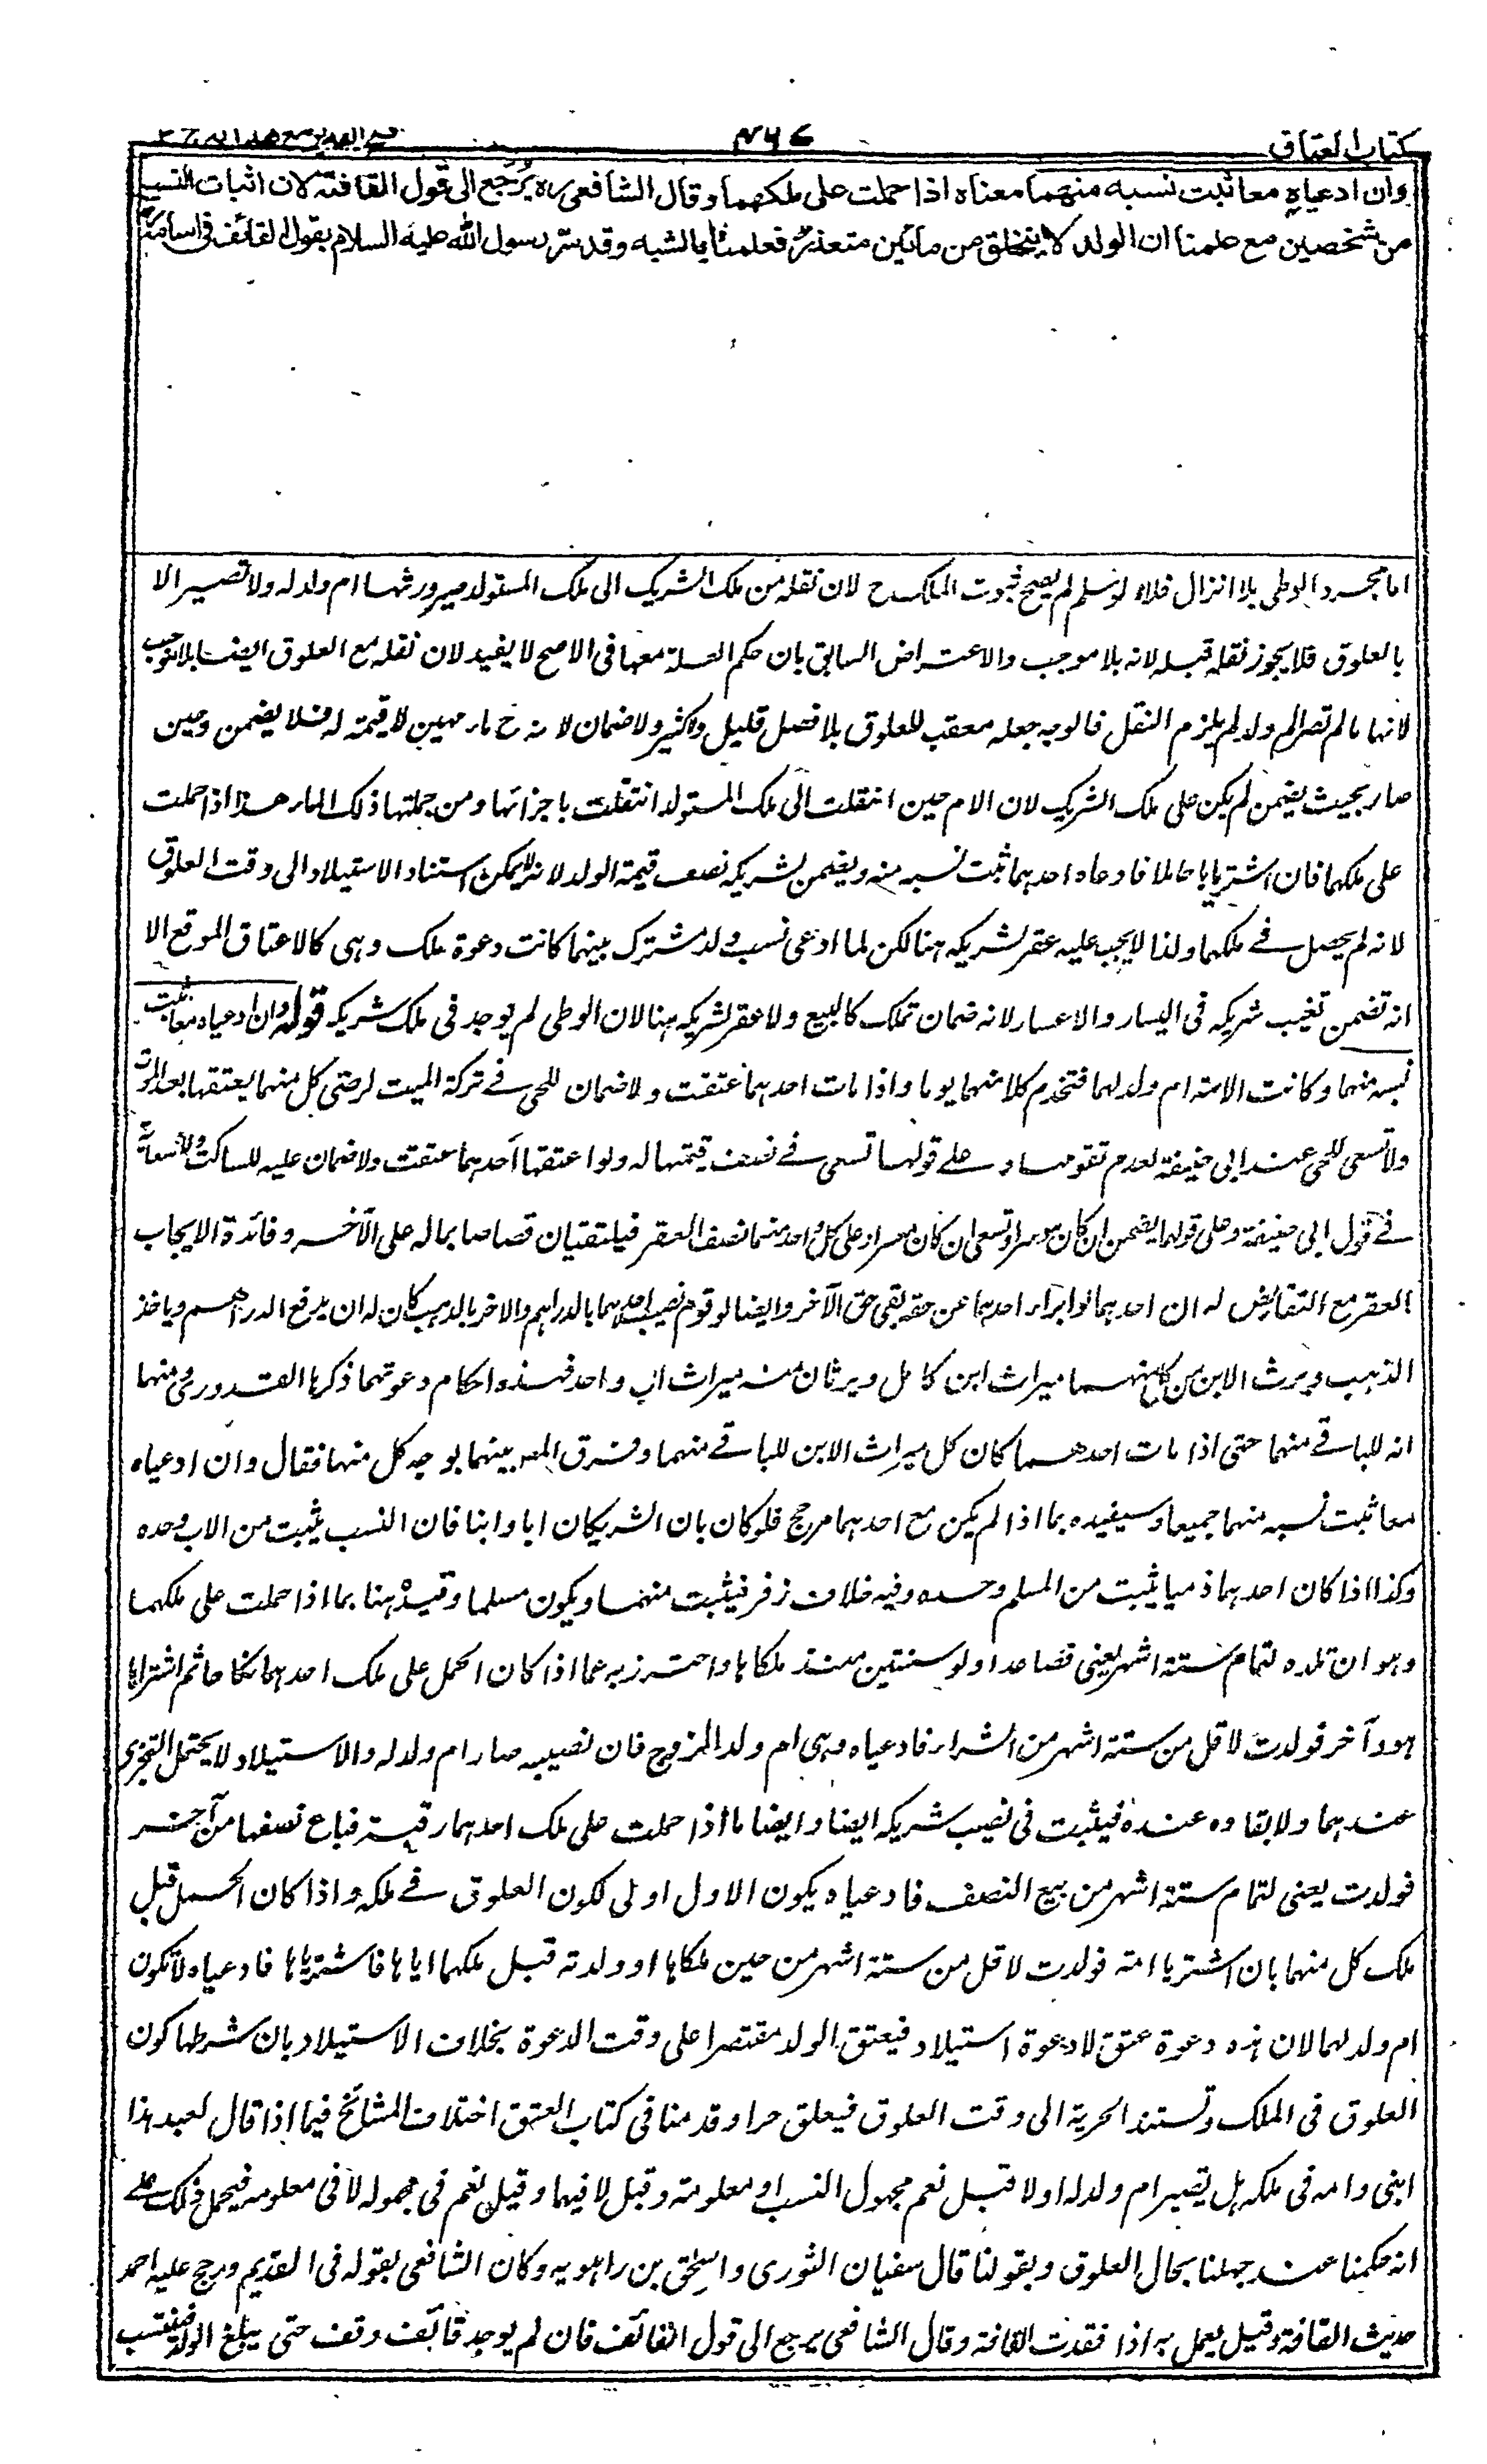 كتاب العتاق
٤٦٧
فتح القدير مع هدايه ج ٢
وان ادعياه معا ثبت نسبه منهما معناه اذا حملت على ملكهما وقال الشافعى ره يرجع الى قول القافة لان اثبات النسب
من شخصين مع علمنا ان الولد لا ينخلق من مائين متعذر فعملنا بالشبه وقد سر رسول الله عليه السلام بقول القائف فى اسامة
اما بمجرد الوطى بلا انزال فلا ولو سلم لم يصح ثبوت الملك ح لان نقله من ملك الشريك الى ملك المستولد صيرورتها ام ولد له ولا تصير الا
بالعلوق فلا يجوز نقله قبله لانه بلا موجب والاعتراض السابق بان حكم العلة معها فى الاصح لا يفيد لان نقله مع العلوق ايضا بلا موجب
لانها ما لم تصر ام ولد لم يلزم النقل فالوجه جعله معقب للعلوق بلا فصل قليل وكثير ولا ضمان لانه ح ماء مهين لا قيمة له فلا يضمن وحين
صار بحيث يضمن لم يكن على ملك الشريك لان الام حين انتقلت الى ملك المستولد انتقلت باجزائها ومن جملتها ذلك الماء هذا اذا حملت
على ملكهما فان اشترياها حاملا فادعاه احدهما ثبت نسبه منه ويضمن لشريكه نصف قيمة الولد لانه لا يمكن استناد الاستيلاد الى وقت العلوق
لانه لم يحصل فى ملكهما ولذا لا يجب عليه عقر لشريكه هنا لكن لما ادعى نسب ولد مشترك بينهما كانت دعوة ملك وهى كالاعتاق الموقع الا
انه تضمن نصيب شريكه فى اليسار والاعسار لانه ضمان تملك كالبيع ولا عقر لشريكه هنا لان الوطى لم يوجد فى ملك شريكه قوله وان ادعياه معا ثبت
نسبه منهما وكانت الامة ام ولد لهما فتخدم كلا منهما يوما واذا مات احدهما عتقت ولا ضمان للحى فى تركة الميت لرضى كل منهما بعتقها بعد الموت
ولا تسعى للحى عند ابى حنيفة لعدم تقومها وعلى قولهما تسعى فى نصف قيمتها له ولو اعتقها احدهما عتقت ولا ضمان عليه للساكت ولا سعاية
فى قول ابى حنيفة وعلى قولهما يضمن ان كان موسرا وتسعى ان كان معسرا وعلى كل واحد منهما نصف العقر فيلتقيان قصاصا بما له على الآخر وفائدة الايجاب
العقر مع التقابض له ان احدهما لو ابراء احدهما عن حقه بقى حق الآخر وايضا لو قوم نصيب احدهما بالدراهم والاخر بالذهب كان له ان يدفع الدراهم وياخذ
الذهب ويرث الابن من كل منهما ميراث ابن كامل ويرثان منه ميراث اب واحد فهذه احكام دعوتهما ذكرها القدورى ومنها
انه للباقى منهما حتى اذا مات احدهما كان كل ميراث الابن للباقى منهما وفرق المص بينهما بوجه كل منها فقال وان ادعياه
معا ثبت نسبه منهما جميعا وسيفيده بما اذا لم يكن مع احدهما مرجح فلو كان بان الشريكان ابا وابنا فان النسب يثبت من الاب وحده
وكذا اذا كان احدهما ذميا يثبت من المسلم وحده وفيه خلاف زفر فيثبت منهما ويكون مسلما وقيده هنا بما اذا حملت على ملكهما
وهو ان تلده لتمام ستة اشهر يعنى فصاعدا ولو سنتين منذ ملكاها واحترز به عما اذا كان الحمل على ملك احدهما نكاحا ثم اشتراها
هو وآخر فولدت لاقل من ستة اشهر من الشراء فادعياه وهى ام ولد المزوج فان نصيبه صار ام ولد له والاستيلاد لا يحتمل التجزى
عندهما ولا بقاؤه عنده فيثبت فى نصيب شريكه ايضا وايضا ما اذا حملت على ملك احدهما رقبة فباع نصفها من آخر
فولدت يعنى لتمام ستة اشهر من بيع النصف فادعياه يكون الاول اولى لكون العلوق فى ملكه واذا كان الحمل قبل
ملك كل منهما بان اشتريا امة فولدت لاقل من ستة اشهر من حين ملكاها او ولدته قبل ملكهما اياها فاشترياها فادعياه لا تكون
ام ولد لهما لان هذه دعوة عتق لا دعوة استيلاد فيعتق الولد مقتصرا على وقت الدعوة بخلاف الاستيلاد بان شرطها كون
العلوق فى الملك وتستند الحرية الى وقت العلوق فيعلق حرا وقد منا فى كتاب العتق اختلاف المشائخ فيما اذا قال لعبد هذا
ابنى وامه فى ملكه هل تصير ام ولد له او لا قيل نعم مجهول النسب او معلومة وقيل لا فيهما وقيل نعم فى مجهوله لا فى معلومه فيحمل ذلك على
انه حكمنا عند جهلنا بحال العلوق وبقولنا قال سفيان الثورى واسحق بن راهويه وكان الشافعى يقوله فى القديم ورجح عليه احمد
حديث القافة وقيل يعمل به اذا فقدت القافة وقال الشافعى يرجع الى قول القائف فان لم يوجد قائف وقف حتى يبلغ الولد فينتسب